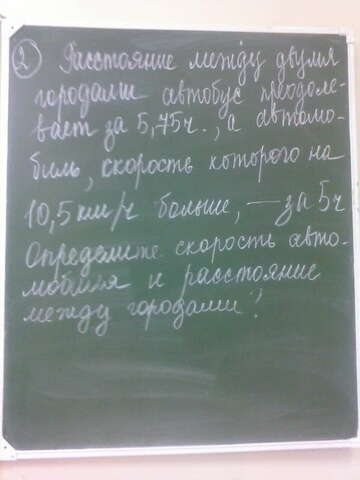 2) Расстояние между двумя
городами автобус преодоле-
вает за 5,75ч., а автомо-
биль, скорость которого на
10,5 км/ч больше, — за 5ч
Определите скорость авто-
мобиля и расстояние
между городами!